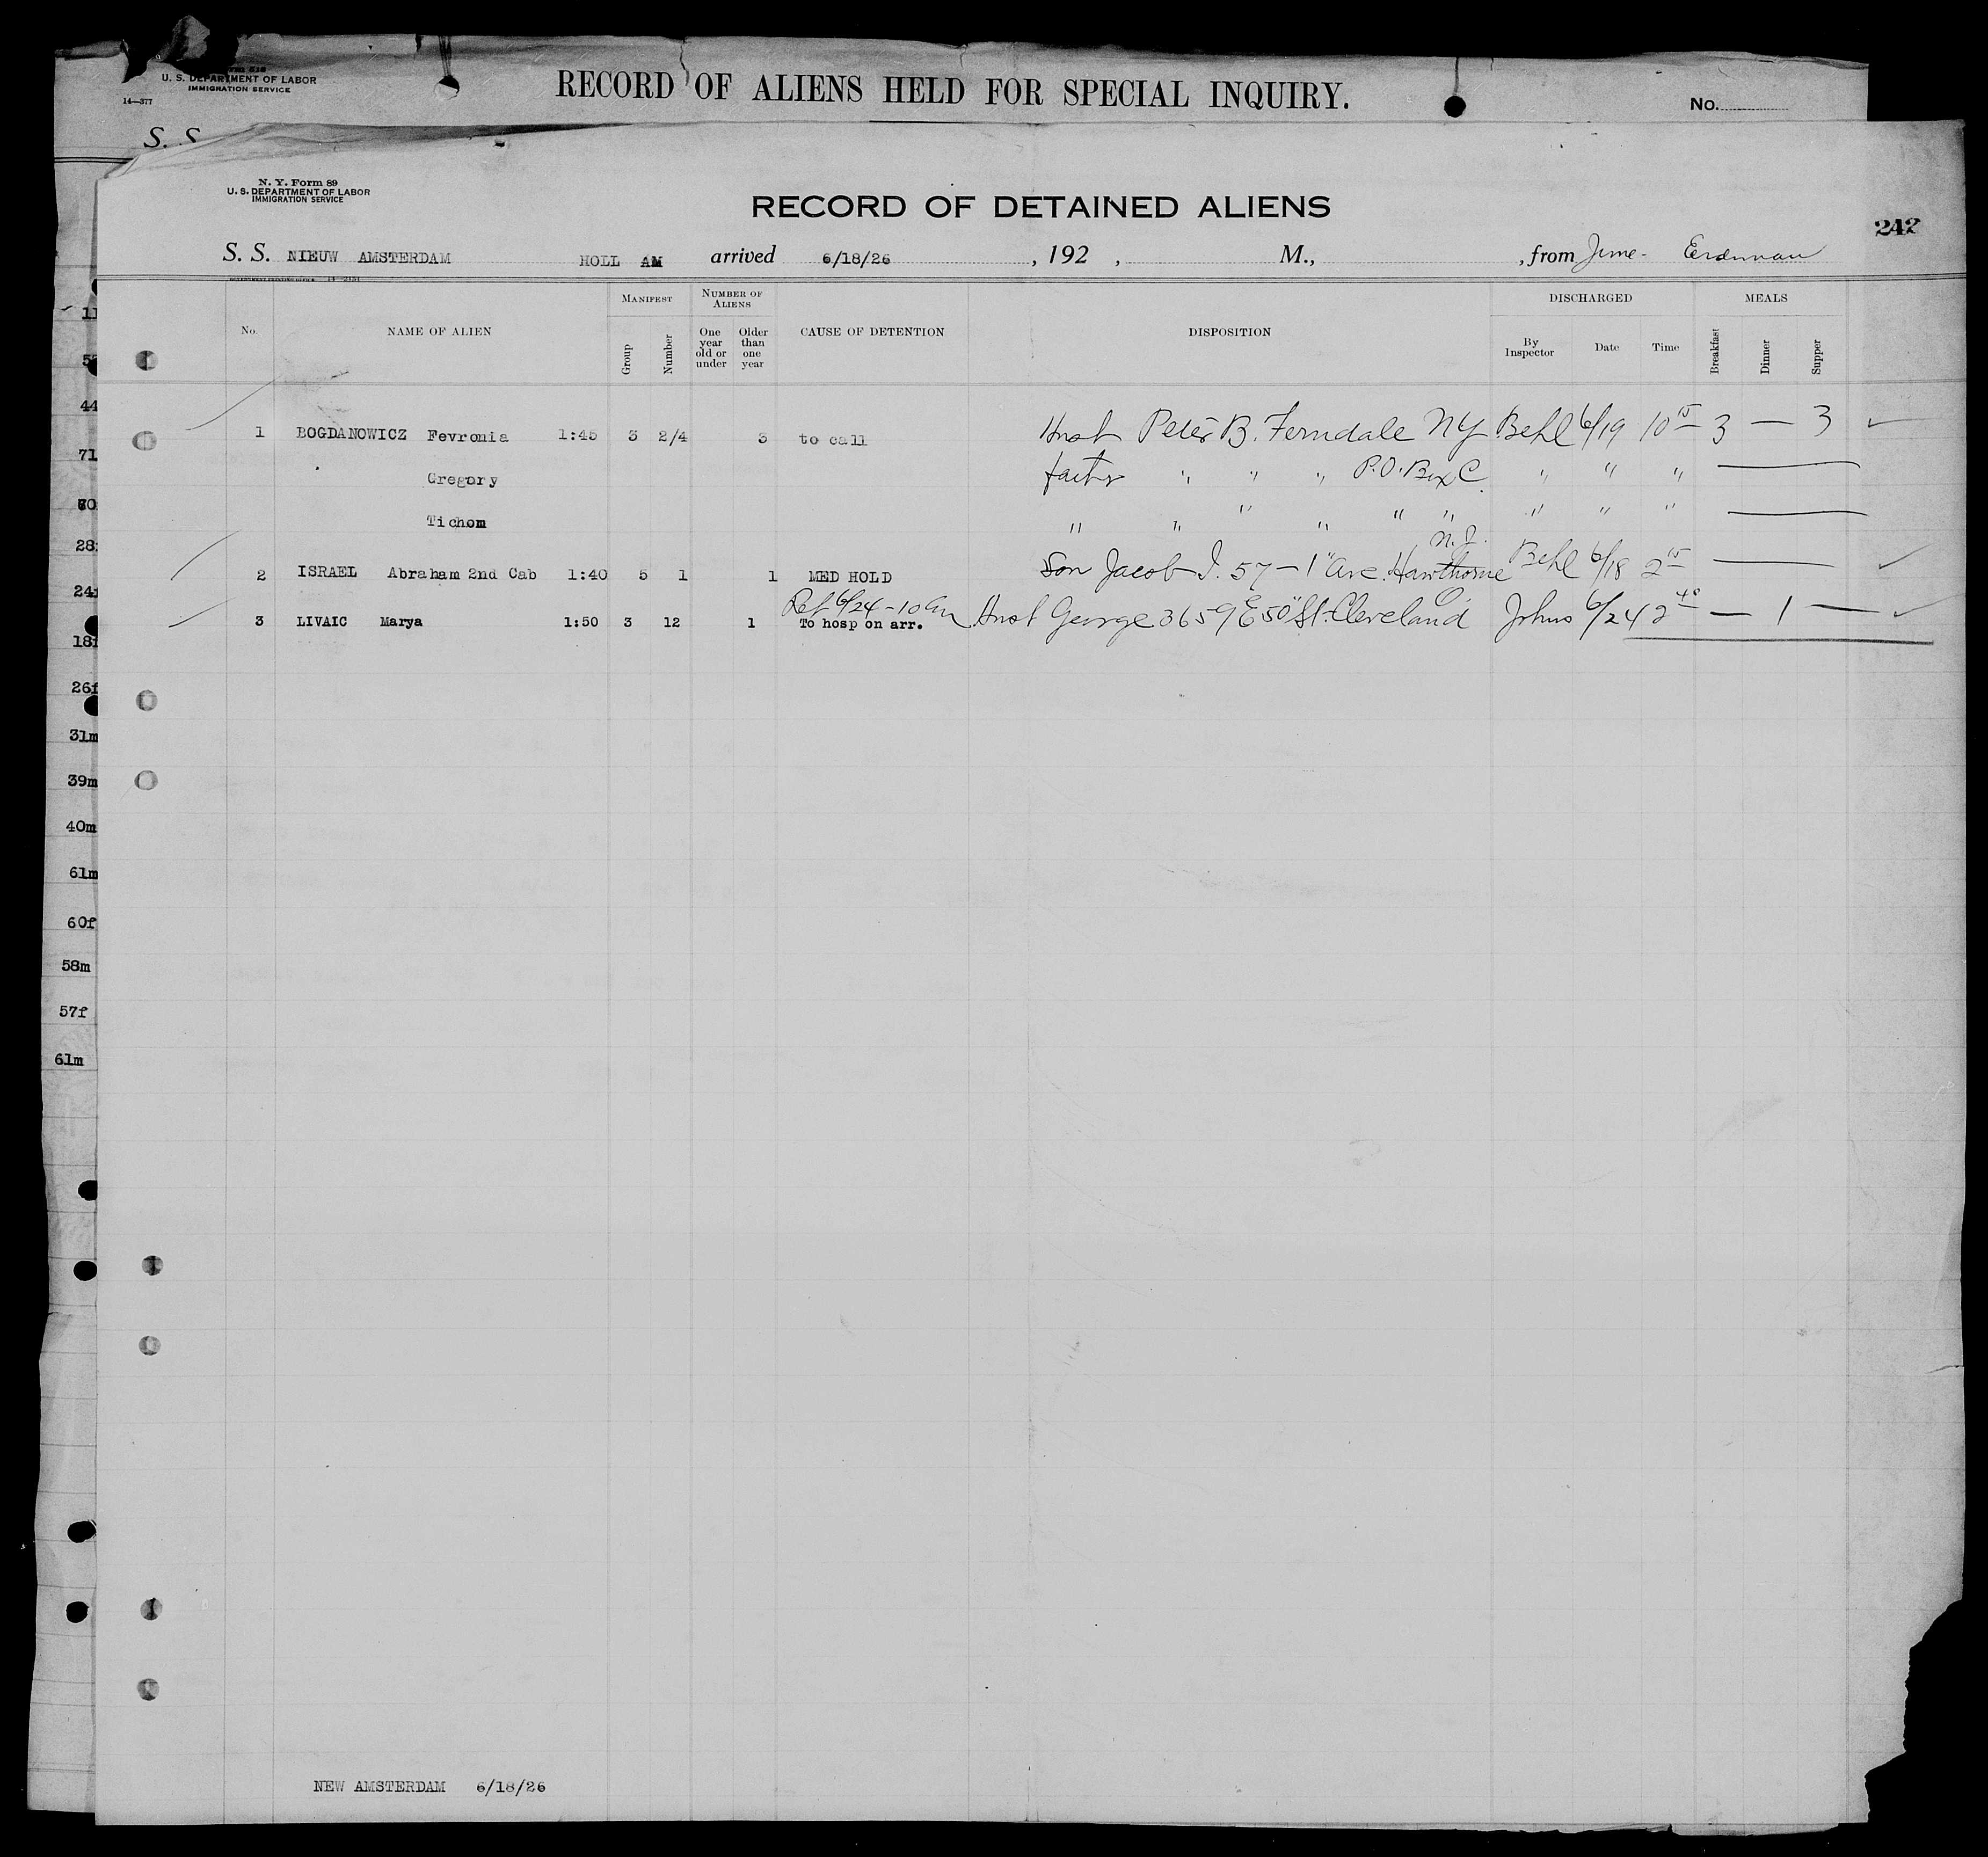 U. S. DEPARTMENT OF LABOR
IMMIGRATION SERVICE
14—377
RECORD OF ALIENS HELD FOR SPECIAL INQUIRY.
No.
S. S.
N. Y. Form 89
U. S. DEPARTMENT OF LABOR
IMMIGRATION SERVICE
RECORD OF DETAINED ALIENS
242
S. S. NIEUW AMSTERDAM HOLL AM arrived 6/18/26 , 192 , M., , from Eerdman
No. NAME OF ALIEN MANIFEST Group Number NUMBER OF ALIENS One year old or under Older than one year CAUSE OF DETENTION DISPOSITION DISCHARGED By Inspector Date Time MEALS Breakfast Dinner Supper
1 BOGDANOWICZ Fevronia 1:45 3 2/4 3 to call Husb Peter B. Ferndale NY Behl 6/19 10 15 3 — 3
Gregory father " " " P.O. Box C " " "
Tichom " " " " " " " " "
2 ISRAEL Abraham 2nd Cab 1:40 5 1 1 MED HOLD Son Jacob I. 57 – 1" Ave. Hawthorne N.J. Behl 6/18 2 15
Ref 6/24 - 10 am
3 LIVAIC Marya 1:50 3 12 1 To hosp on arr. Husb George 3659 E 50" St. Cleveland O. Johns 6/24 2 40 — 1 —
44
71
28
24
18
26f
31m
39m
40m
61m
60f
58m
57f
61m
NEW AMSTERDAM 6/18/26